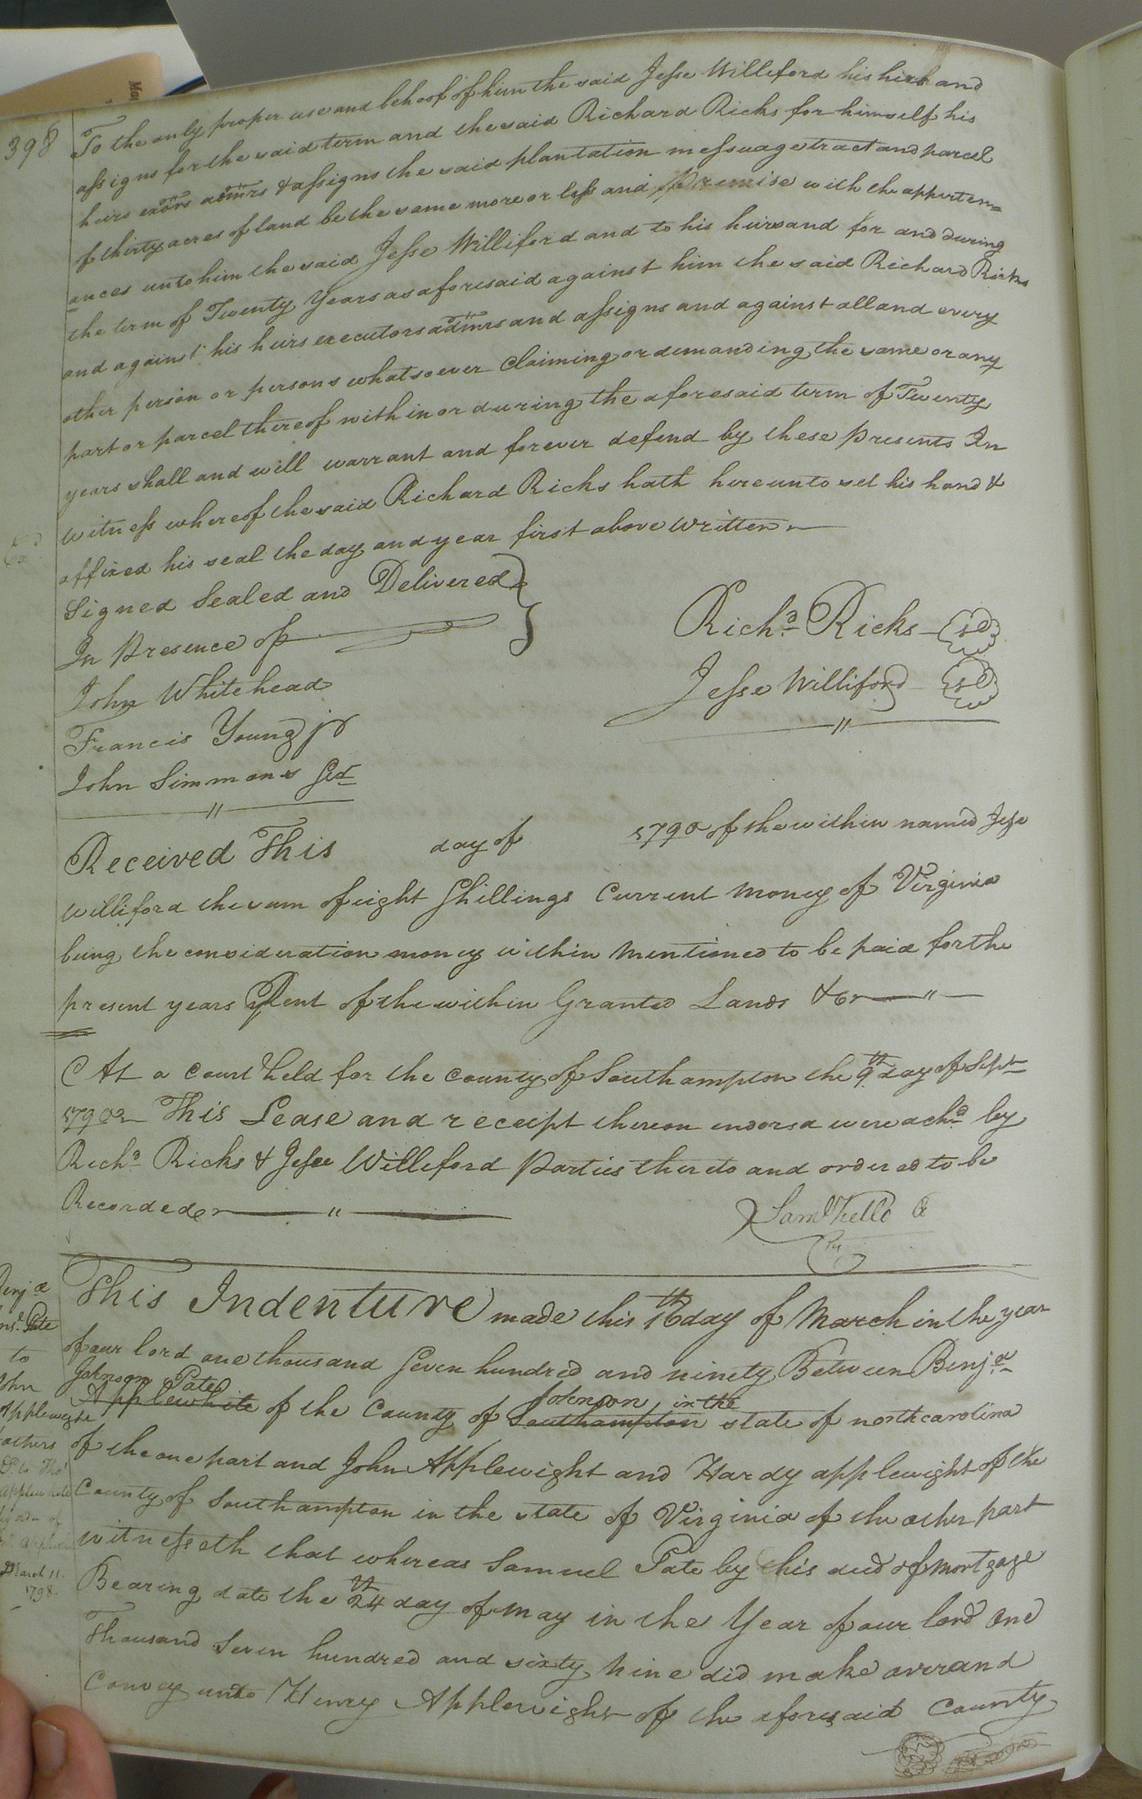 398
To the only proper use and behoof of him the said Jesse Williford his heirs and
assigns for the said term and the said Richard Ricks for himself his
heirs exors admrs & assigns the said plantation messuage tract and parcel
of thirty acres of land be the same more or less and premise with the apperten=
ances unto him the said Jesse Williford and to his heirs and for and during
the term of Twenty Years as aforesaid against him the said Richard Ricks
and against his heirs executors admrs and assigns and against all and every
other person or persons whatsoever Claiming or demanding the same or any
part or parcel thereof with in or during the aforesaid term of Twenty
years shall and will warrant and forever defend by these Presents In
witness whereof the said Richard Ricks hath hereunto set his hand &
affixed his seal the day and year first above written
Signed Sealed and Delivered
In Presence of
John Whitehead
Francis Young jr
John Simmons
Richd Ricks
Jesse Williford
Received This day of 1790 of the within named Jesse
Williford the sum of eight Shillings Current money of Virginia
being the consideration money within mentioned to be paid for the
present years Rent of the within Granted Lands &c
At a Court held for the County of Southampton the 9th day of Sept
1790 This Lease and receipt thereon endorsd were achd by
Richd Ricks & Jesse Williford Parties thereto and ordered to be
Recorded
Saml Kello
This Indenture made this 16th day of March in the year
of our lord one thousand Seven hundred and ninety Between Benja
Johnson Pate
Applewhite of the County of Southampton Johnson, in the state of north carolina
of the one part and John Applewight and Hardy applewight of the
County of Southampton in the state of Virginia of the other part
witnesseth that whereas Samuel Pate by his deed of mortgage
Bearing date the 24th day of may in the Year of our lord One
Thousand Seven hundred and sixty nine did make over and
Convey unto Henry Applewight of the aforesaid County
Benja
Pate
to
John
Applewight
others
March 11.
1798.